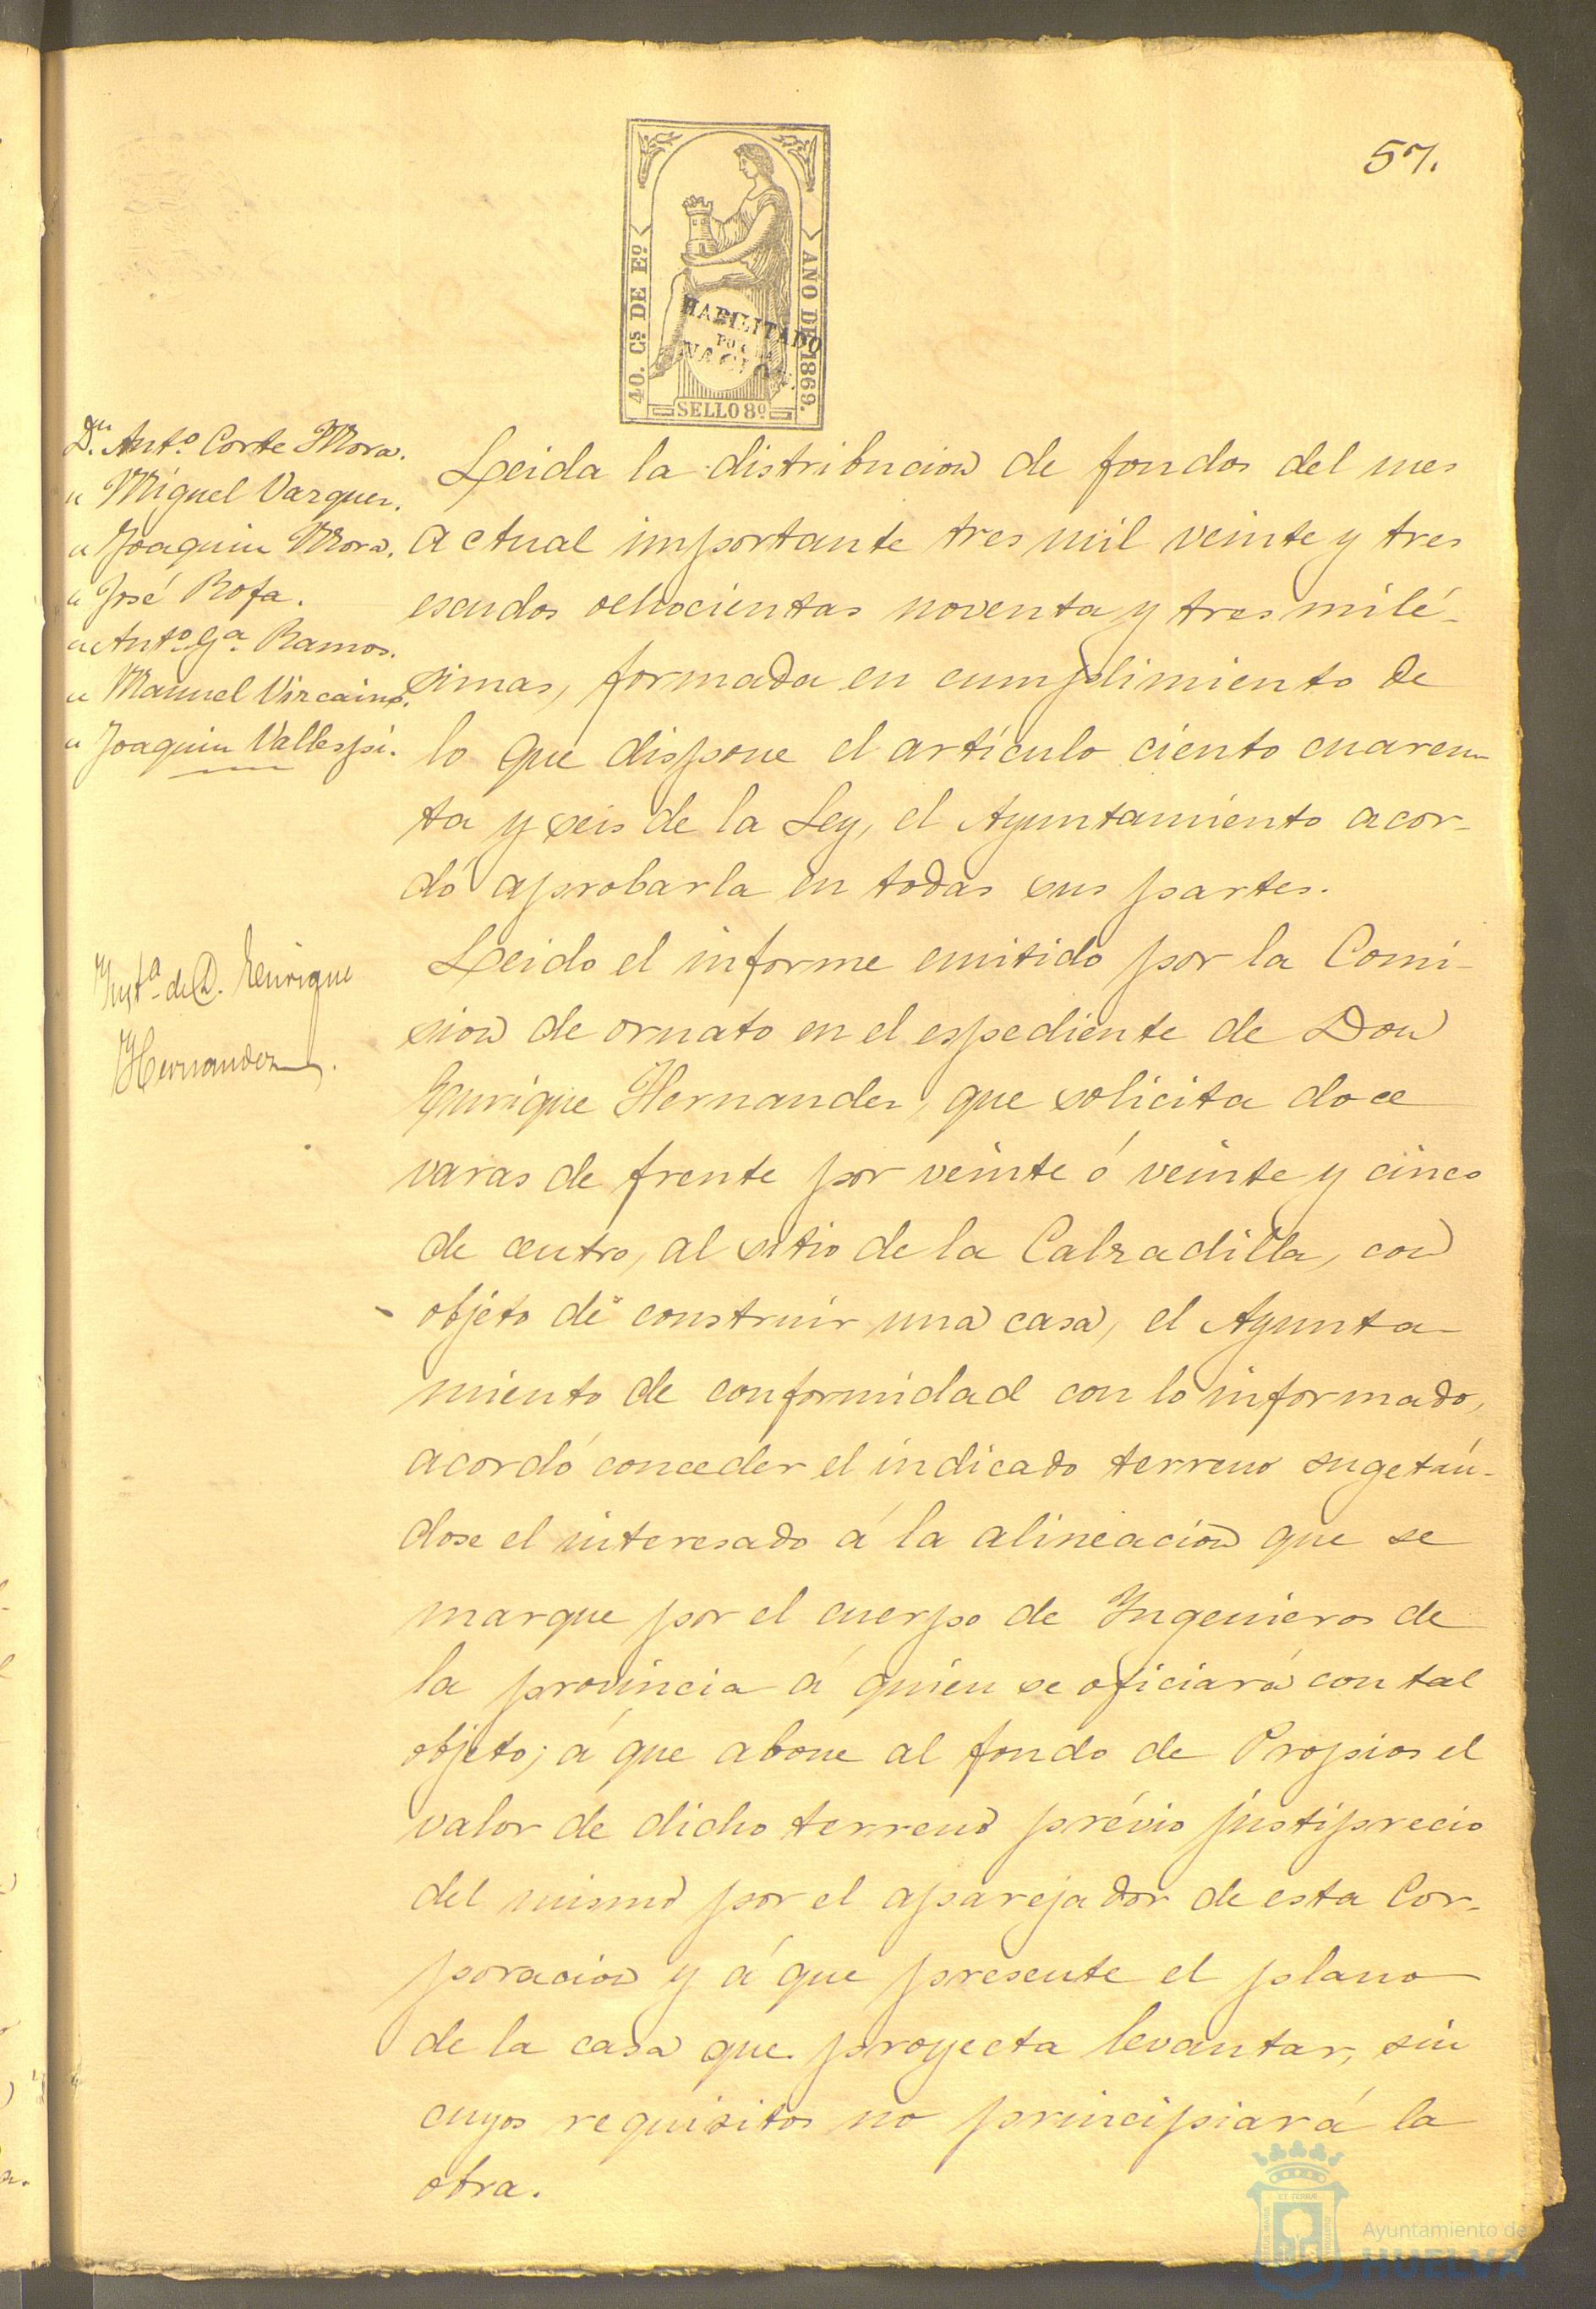 57.
40. Cs. DE Eo.
AÑO DE 1869.
HABILITADO
POR LA
NACION.
SELLO 8º
Dn. Antº. Corte Mora.
" Miguel Vazquez.
" Joaquin Mora.
" José Rofa.
" Antº. Gª. Ramos.
" Manuel Vizcaino.
" Joaquin Vallespi.
Leida la distribucion de fondos del mes
actual importante tres mil veinte y tres
escudos ochocientas noventa y tres milé-
simas, formada en cumplimiento de
lo que dispone el artículo ciento cuaren-
ta y seis de la Ley, el Ayuntamiento acor-
dó aprobarla en todas sus partes.
Instª. de D. Enrique
Hernandez.
Leido el informe emitido por la Comi-
sion de ornato en el espediente de Don
Enrique Hernandez, que solicita doce
varas de frente por veinte ó veinte y cinco
de centro, al sitio de la Calzadilla, con
objeto de construir una casa, el Ayunta-
miento de conformidad con lo informado,
acordó conceder el indicado terreno sugetán-
dose el interesado á la alineacion que se
marque por el cuerpo de Ingenieros de
la provincia á quien se oficiará con tal
objeto; á que abone al fondo de Propios el
valor de dicho terreno prévio justiprecio
del mismo por el aparejador de esta Cor-
poracion y á que presente el plano
de la casa que proyecta levantar, sin
cuyos requisitos no principiará la
obra.
Ayuntamiento de
HUELVA